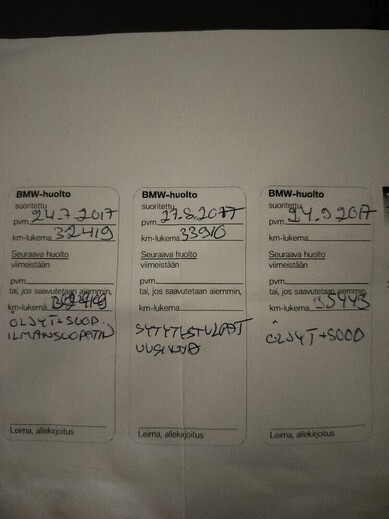 BMW-huolto
suoritettu
pvm. 24.7.2017
km-lukema 32419
Seuraava huolto
viimeistään
pvm.
tai, jos saavutetaan aiemmin,
km-lukema
ÖLJYT+SUOD.
ILMANSUODATIN
Leima, allekirjoitus
BMW-huolto
suoritettu
pvm. 27.8.2017
km-lukema 33910
Seuraava huolto
viimeistään
pvm.
tai, jos saavutetaan aiemmin,
km-lukema
SYTYTYSTULPAT
Leima, allekirjoitus
BMW-huolto
suoritettu
pvm. 24.9.2017
km-lukema
Seuraava huolto
viimeistään
pvm.
tai, jos saavutetaan aiemmin,
km-lukema 35443
ÖLJYT+SUOD
Leima, allekirjoitus